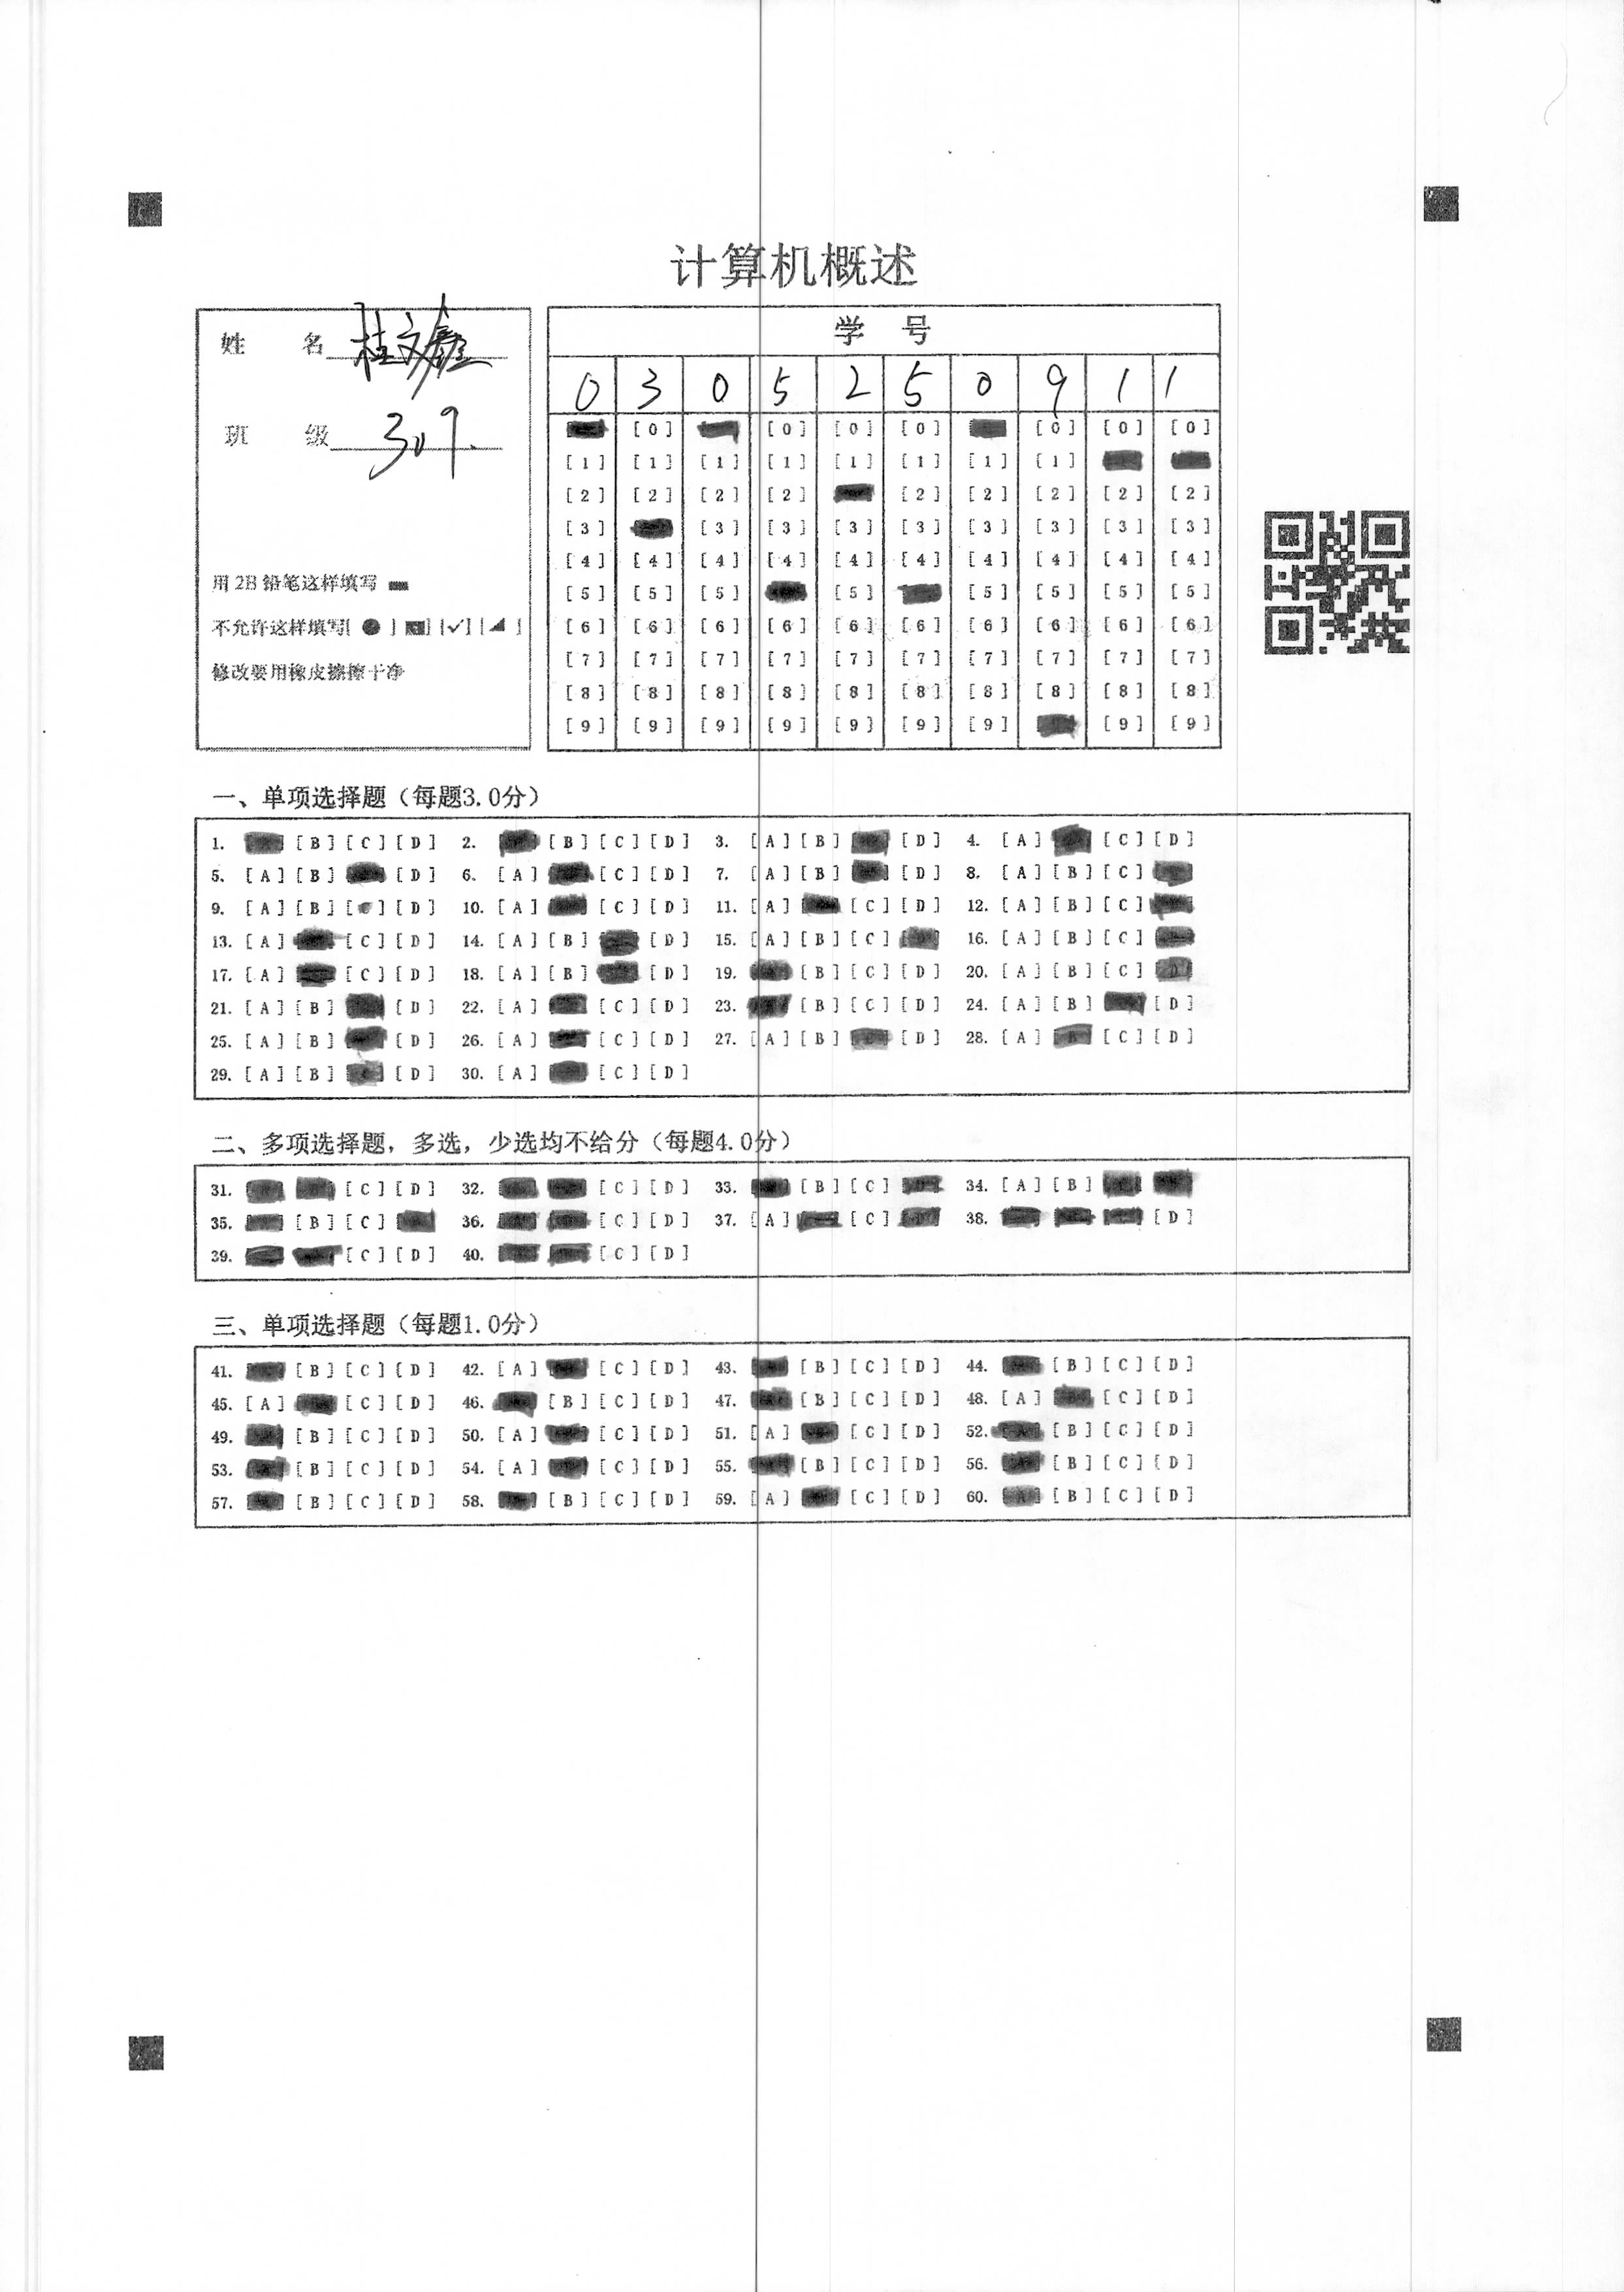 计算机概述
姓 名 桂文鑫
班 级 309.
用 2B 铅笔这样填写
不允许这样填写[ ● ] [ ] [✓] [ ◢ ]
修改要用橡皮擦擦干净
学 号
0 3 0 5 2 5 0 9 1 1
[0] [0] [0] [0] [0] [0] [0]
[1] [1] [1] [1] [1] [1] [1] [1]
[2] [2] [2] [2] [2] [2] [2] [2] [2]
[3] [3] [3] [3] [3] [3] [3] [3] [3]
[4] [4] [4] [4] [4] [4] [4] [4] [4] [4]
[5] [5] [5] [5] [5] [5] [5] [5]
[6] [6] [6] [6] [6] [6] [6] [6] [6] [6]
[7] [7] [7] [7] [7] [7] [7] [7] [7] [7]
[8] [8] [8] [8] [8] [8] [8] [8] [8] [8]
[9] [9] [9] [9] [9] [9] [9] [9] [9]
一、单项选择题（每题3.0分）
1. [B] [C] [D] 2. [B] [C] [D] 3. [A] [B] [D] 4. [A] [C] [D]
5. [A] [B] [D] 6. [A] [C] [D] 7. [A] [B] [D] 8. [A] [B] [C]
9. [A] [B] [C] [D] 10. [A] [C] [D] 11. [A] [C] [D] 12. [A] [B] [C]
13. [A] [C] [D] 14. [A] [B] [D] 15. [A] [B] [C] 16. [A] [B] [C]
17. [A] [C] [D] 18. [A] [B] [D] 19. [B] [C] [D] 20. [A] [B] [C] [D]
21. [A] [B] [D] 22. [A] [C] [D] 23. [B] [C] [D] 24. [A] [B] [D]
25. [A] [B] [D] 26. [A] [C] [D] 27. [A] [B] [D] 28. [A] [B] [C] [D]
29. [A] [B] [C] [D] 30. [A] [C] [D]
二、多项选择题，多选，少选均不给分（每题4.0分）
31. [C] [D] 32. [C] [D] 33. [B] [C] 34. [A] [B]
35. [B] [C] 36. [C] [D] 37. [A] [C] 38. [D]
39. [C] [D] 40. [C] [D]
三、单项选择题（每题1.0分）
41. [B] [C] [D] 42. [A] [C] [D] 43. [B] [C] [D] 44. [B] [C] [D]
45. [A] [C] [D] 46. [B] [C] [D] 47. [B] [C] [D] 48. [A] [C] [D]
49. [B] [C] [D] 50. [A] [C] [D] 51. [A] [C] [D] 52. [B] [C] [D]
53. [B] [C] [D] 54. [A] [C] [D] 55. [B] [C] [D] 56. [B] [C] [D]
57. [B] [C] [D] 58. [B] [C] [D] 59. [A] [C] [D] 60. [A] [B] [C] [D]